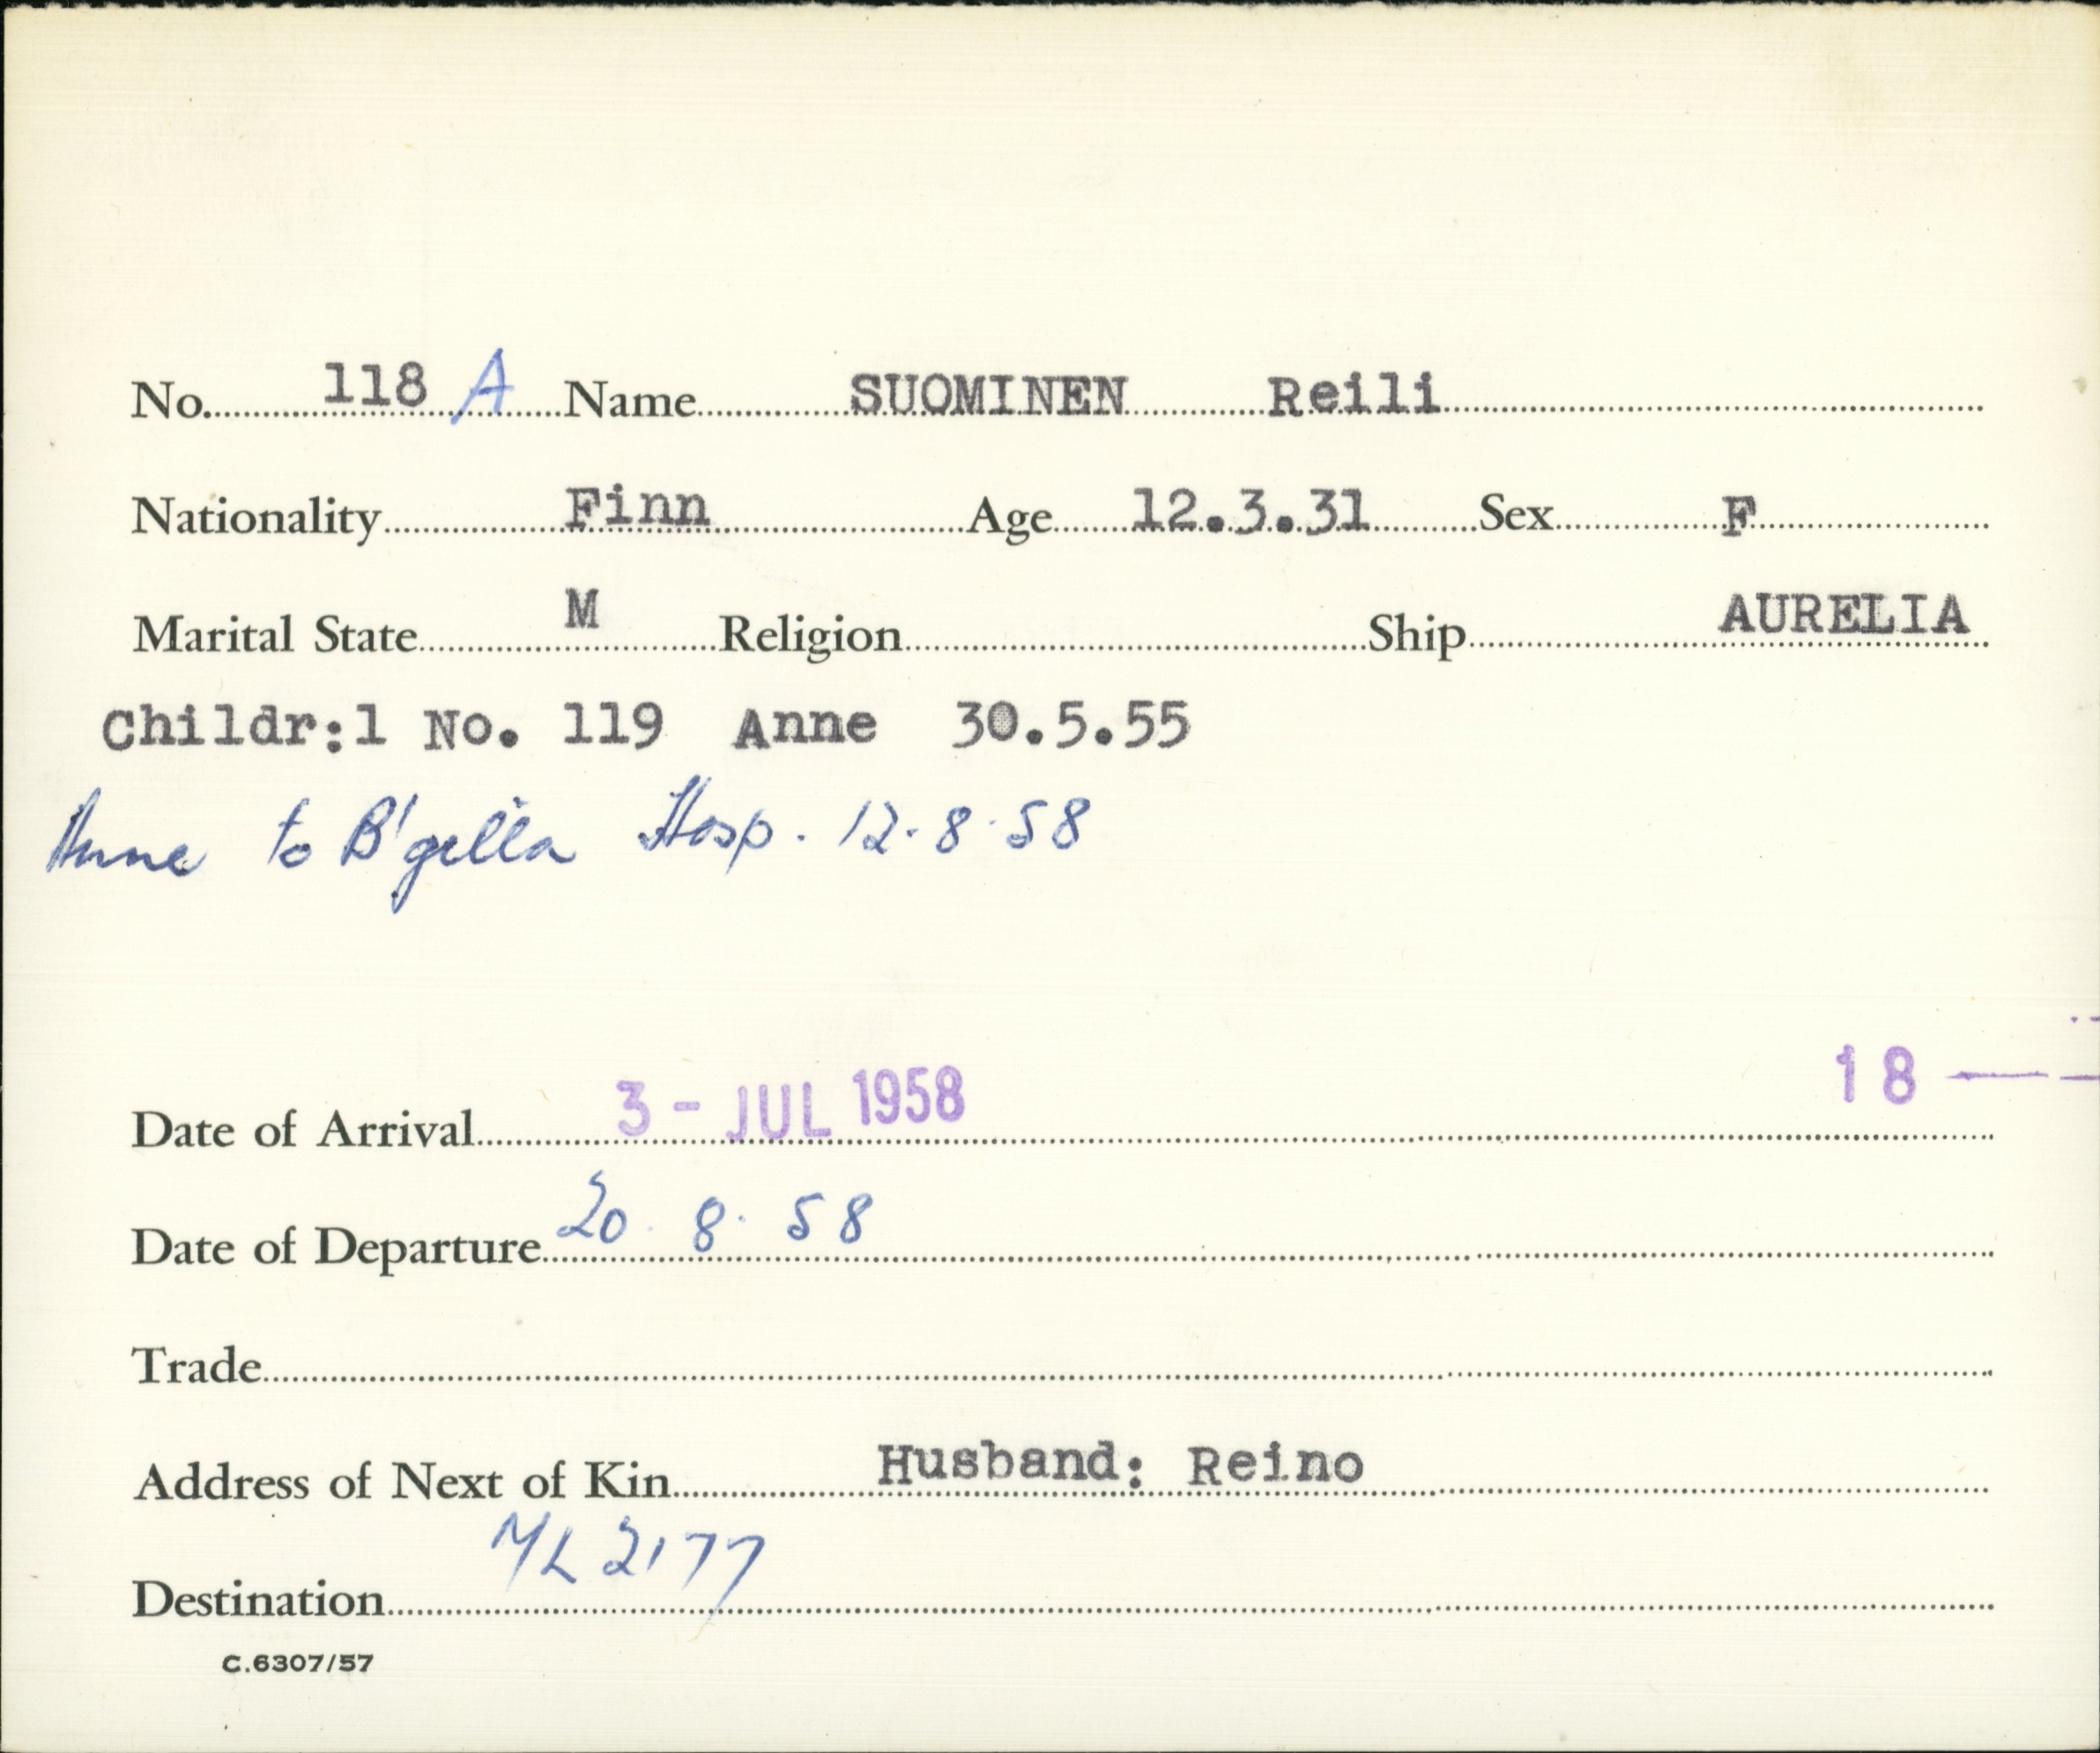 No. 118 A Name SUOMINEN Reili
Nationality Finn Age 12.3.31 Sex F
Marital State M Religion Ship AURELIA
Childr:1 No. 119 Anne 30.5.55
Anne to B'gilla Hosp. 12.8.58
18 —
Date of Arrival 3 - JUL 1958
Date of Departure 20. 8. 58
Trade
Address of Next of Kin Husband: Reino
ML 2177
Destination
C.6307/57